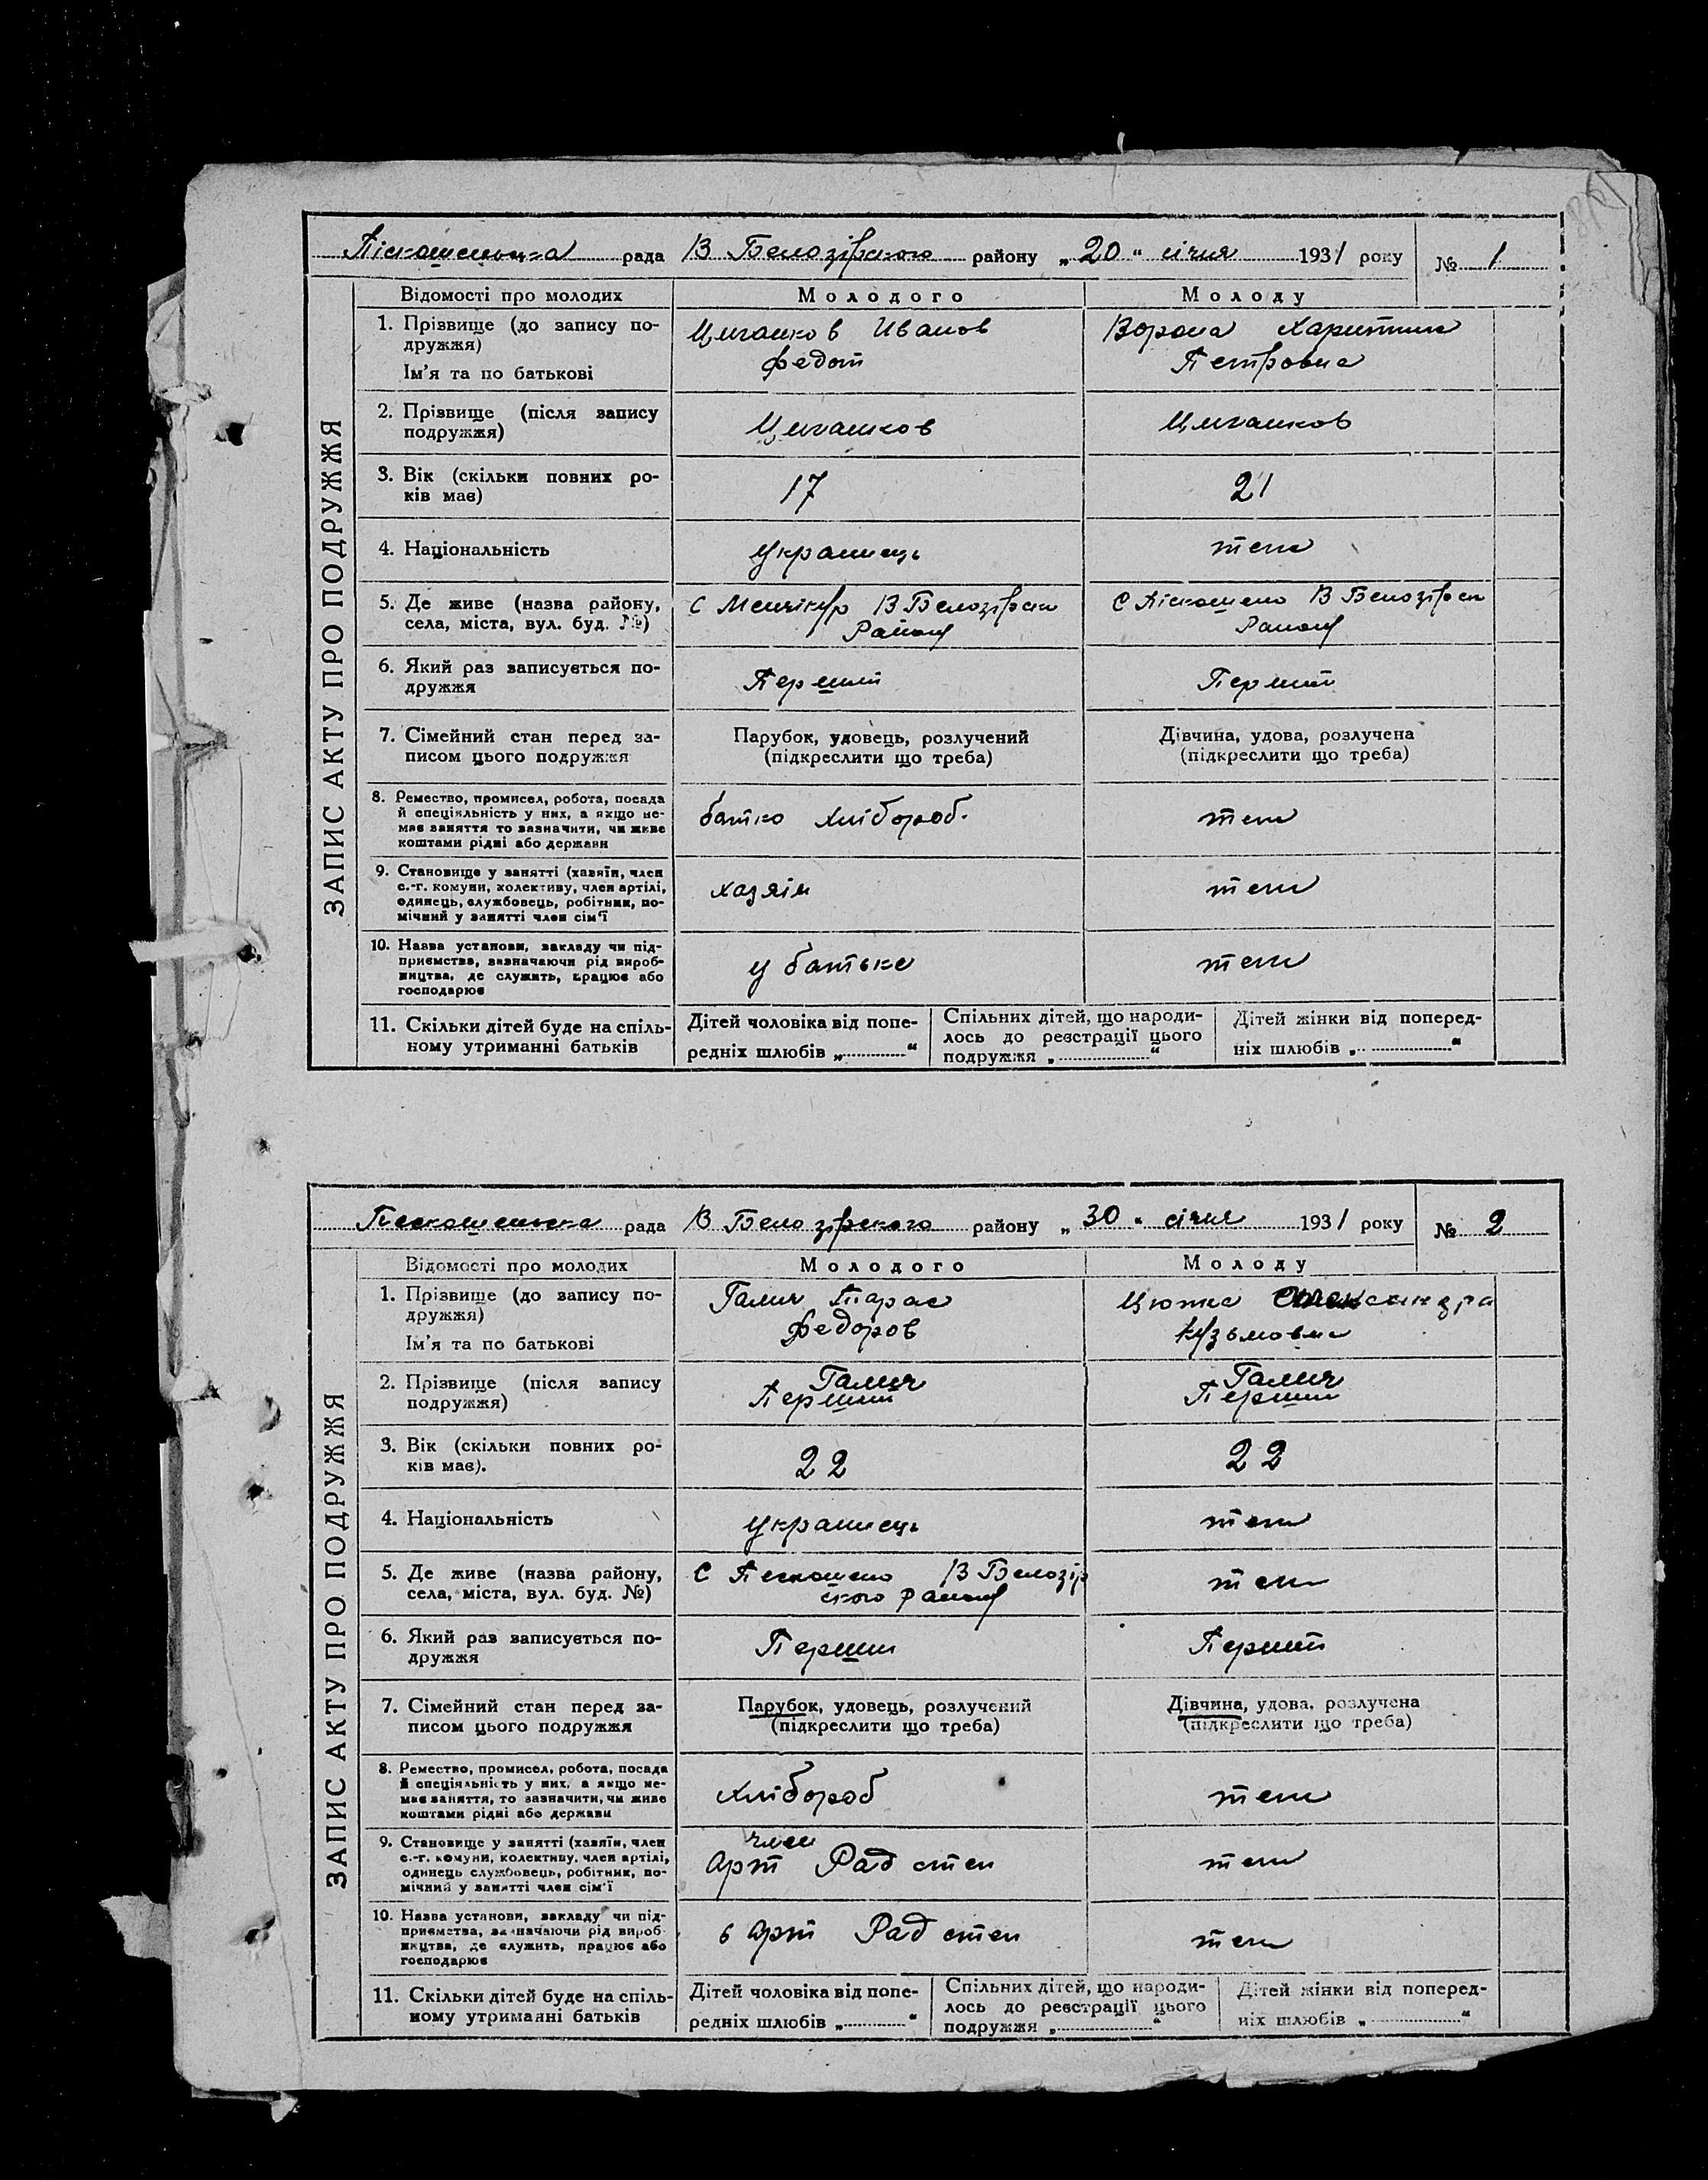 Піскошинська рада В Белозірского району „ 20 “ січня 1931 року № 1
Відомості про молодих Молодого Молоду
ЗАПИС АКТУ ПРО ПОДРУЖЖЯ
1. Прізвище (до запису по-
дружжя)
Ім’я та по батькові
Циганков Иванов
Федот
Ворона Харитина
Петровна
2. Прізвище (після запису
подружжя)
Циганков
Циганков
3. Вік (скільки повних ро-
ків має)
17
21
4. Національність
Украинець
теж
5. Де живе (назва району,
села, міста, вул. буд. №)
С Менчікур В Белозірск
Району
С Піскошено В Белозірск
Району
6. Який раз записується по-
дружжя
Перший
Перший
7. Сімейний стан перед за-
писом цього подружжя
Парубок, удовець, розлучений
(підкреслити що треба)
Дівчина, удова, розлучена
(підкреслити що треба)
8. Ремество, промисел, робота, посада
й спеціяльність у них, а якщо не-
має заняття то зазначити, чи живе
коштами рідні або держави
батко хлібороб.
теж
9. Становище у занятті (хазяїн, член
с.-г. комуни, колективу, член артілі,
одинець, службовець, робітник, по-
мічний у занятті член сім’ї
хазяін
теж
10. Назва установи, закладу чи під-
приємства, зазначаючи рід вироб-
ництва, де служить, працює або
господарює
у батька
теж
11. Скільки дітей буде на спіль-
ному утриманні батьків
Дітей чоловіка від попе-
редніх шлюбів „ “
Спільних дітей, що народи-
лось до реєстрації цього
подружжя „ “
Дітей жінки від поперед-
ніх шлюбів „ “
Пескошенська рада В Белозірского району „ 30 “ січня 1931 року № 2
Відомості про молодих Молодого Молоду
ЗАПИС АКТУ ПРО ПОДРУЖЖЯ
1. Прізвище (до запису по-
дружжя)
Ім’я та по батькові
Галич Тарас
Федоров
Цюпка Олександра
Кузьмовна
2. Прізвище (після запису
подружжя)
Галич
Перший
Галич
Перший
3. Вік (скільки повних ро-
ків має).
22
22
4. Національність
Украинець
теж
5. Де живе (назва району,
села, міста, вул. буд. №)
С Пескошено В Белозір
ского Району
теж
6. Який раз записується по-
дружжя
Перший
Перший
7. Сімейний стан перед за-
писом цього подружжя
Парубок, удовець, розлучений
(підкреслити що треба)
Дівчина, удова, розлучена
(підкреслити що треба)
8. Ремество, промисел, робота, посада
й спеціяльність у них, а якщо не-
має заняття, то зазначити, чи живе
коштами рідні або держави
Хлібороб
теж
9. Становище у занятті (хазяїн, член
с.-г. комуни, колективу, член артілі,
одинець службовець, робітник, по-
мічний у занятті член сім’ї
член
Арт Рад степ
теж
10. Назва установи, закладу чи під-
приємства, зазначаючи рід вироб-
ництва, де служить, працює або
господарює
в арт Рад степ
теж
11. Скільки дітей буде на спіль-
ному утриманні батьків
Дітей чоловіка від попе-
редніх шлюбів „ “
Спільних дітей, що народи-
лось до реєстрації цього
подружжя „ “
Дітей жінки від поперед-
ніх шлюбів „ “